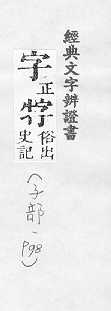 經典文字辨證書
字正牸俗出史記
(子部、p98)